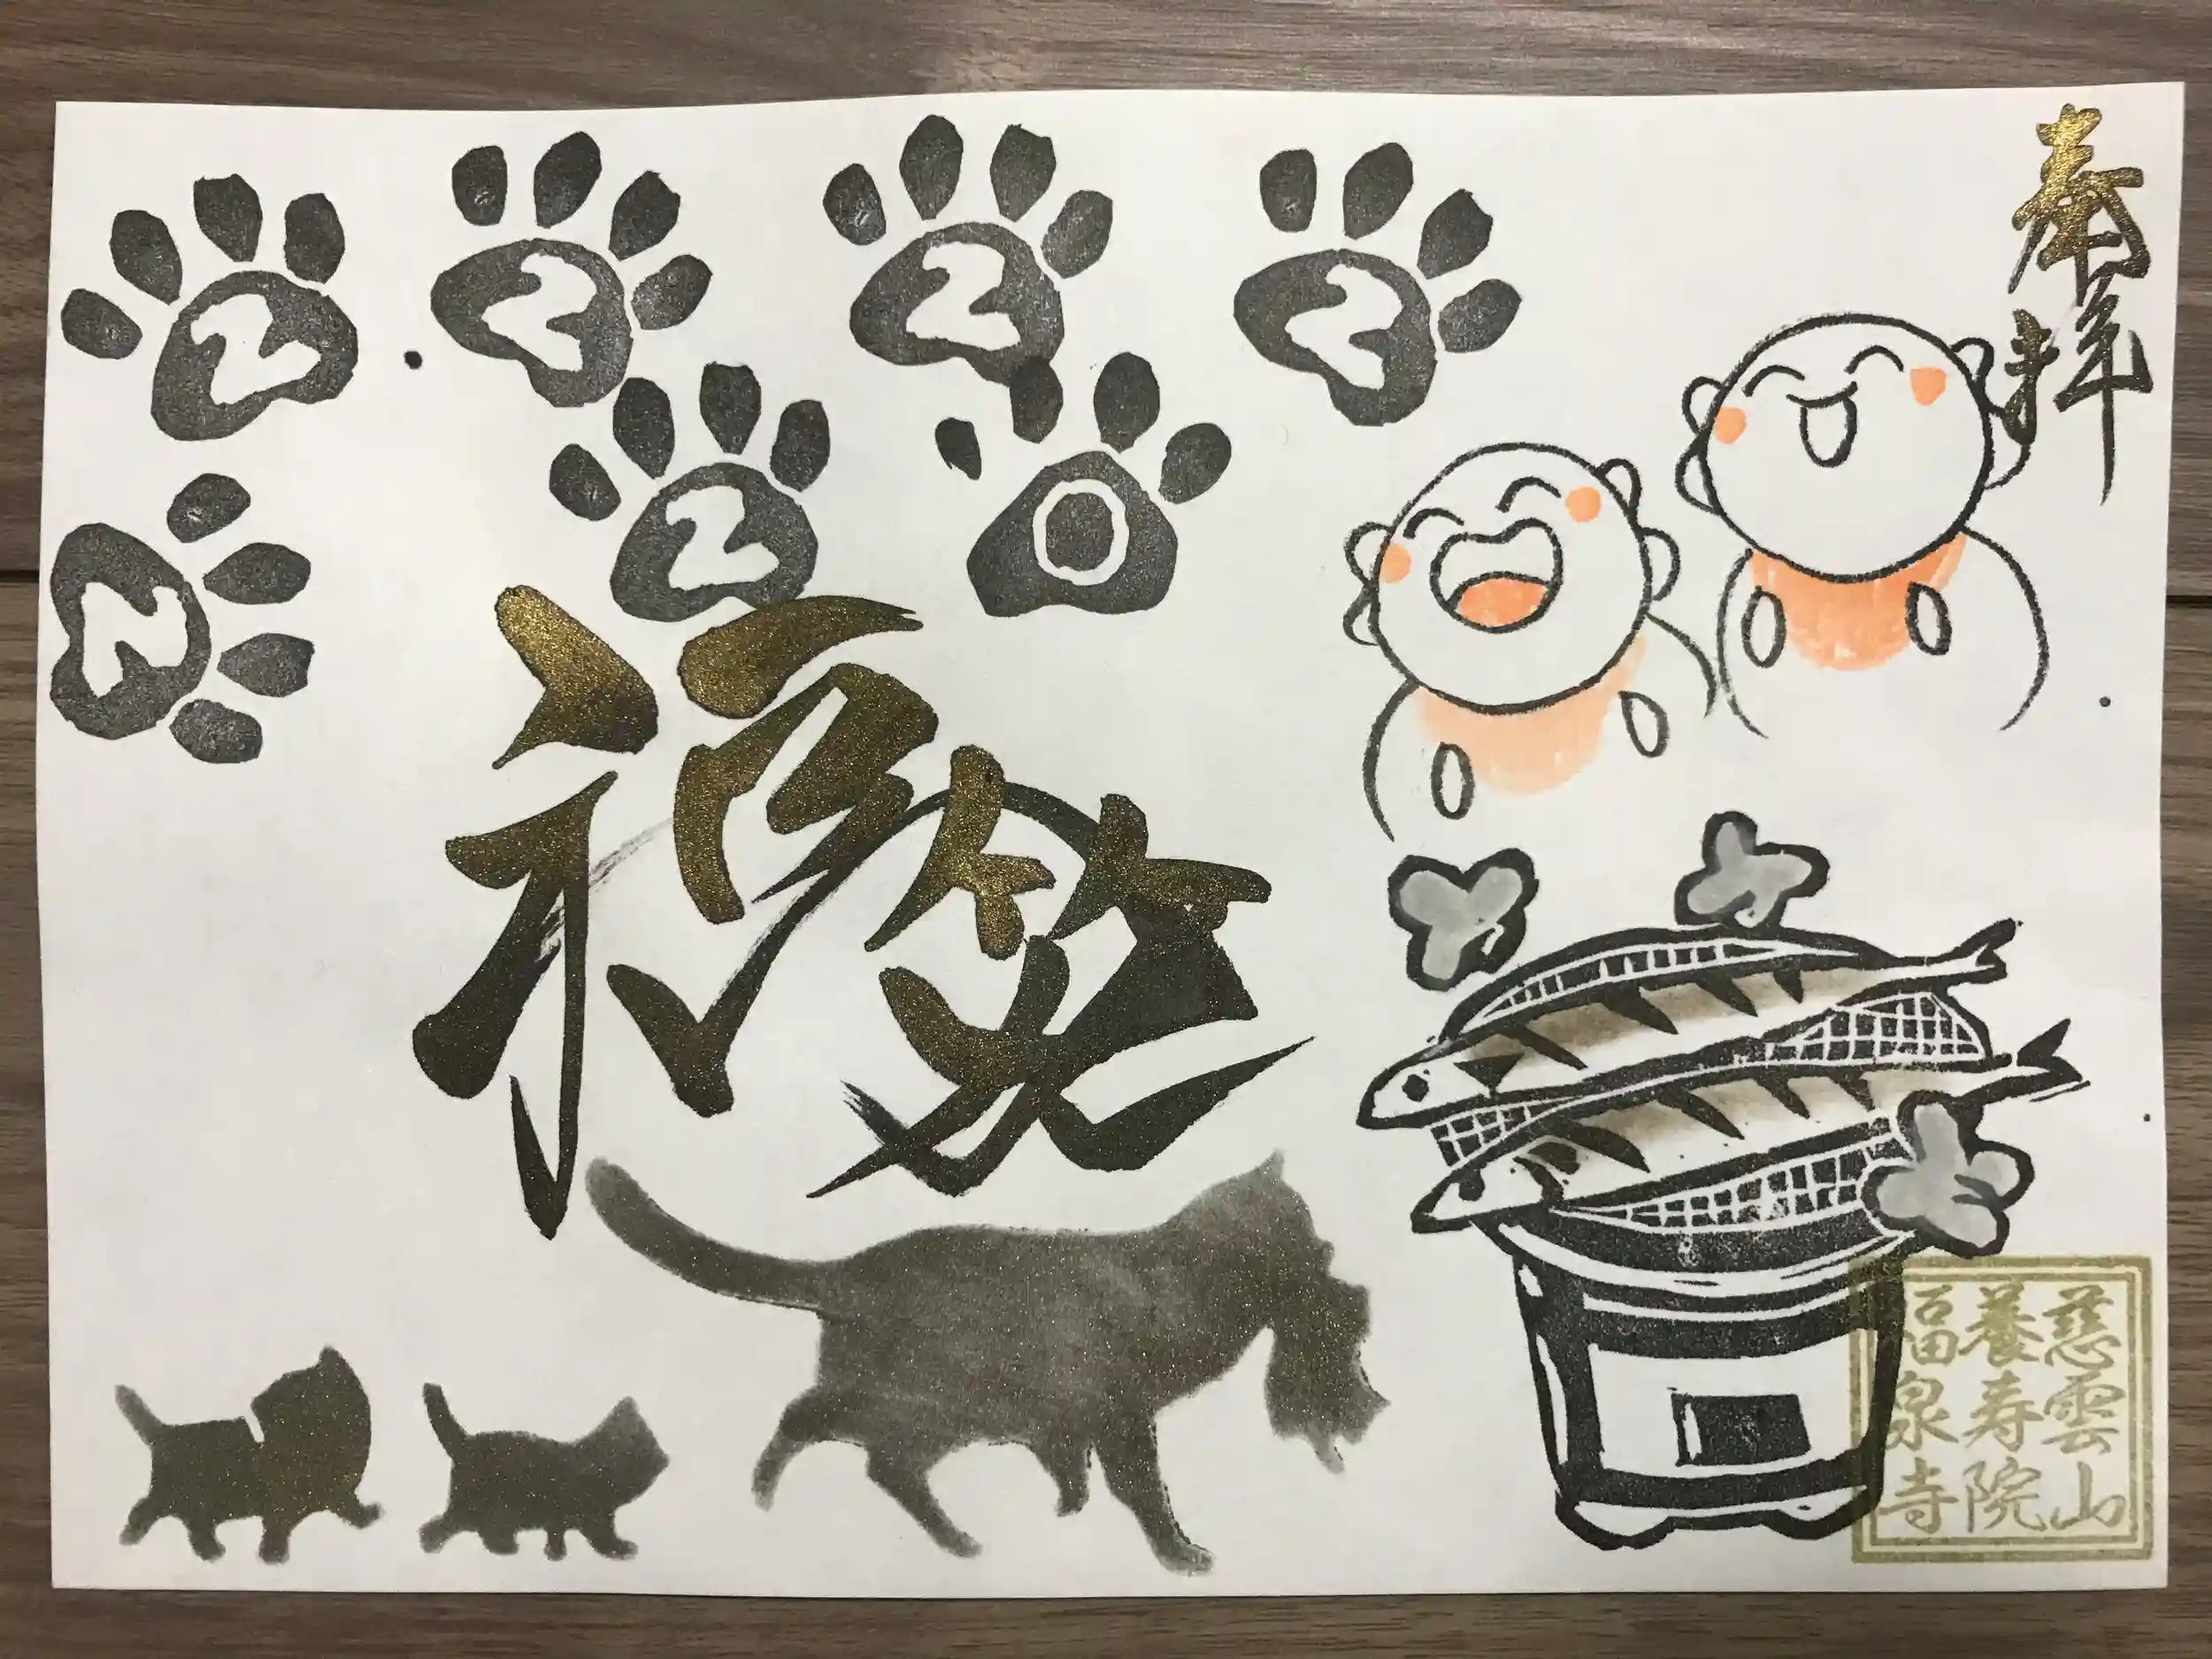 奉拝
2022 2・22
福笑
慈雲山
養寿院
福泉寺